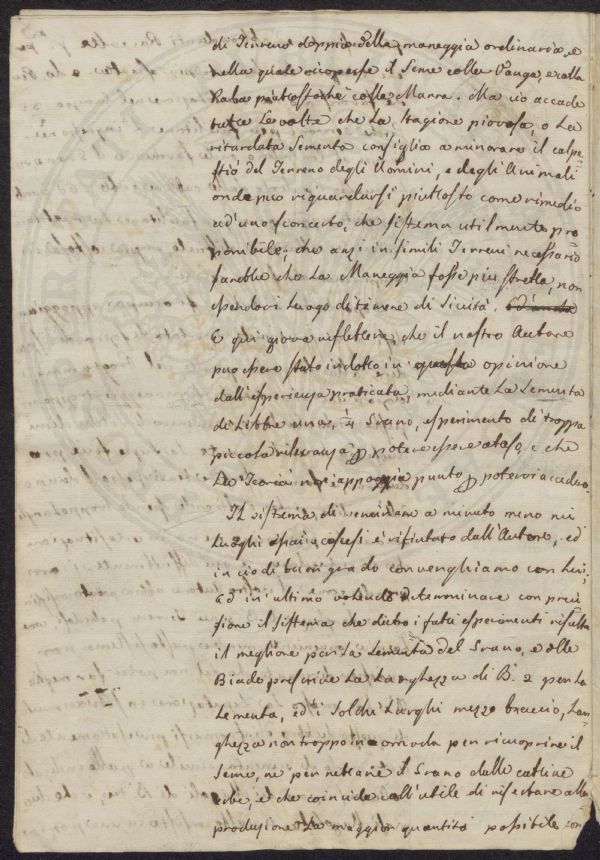 di Terreno doppia della maneggia ordinaria, e
nella quale si coperse il Seme colla Vanga, e colla
piuttosto che colla Marra. Ma ciò accade
tutte le volte che La Stagione piovosa, o La
ritardata Sementa consiglia a minorare il calpe=
stio del Terreno degli Uomini, e degli Animali
onde può riguardarsi piuttosto come rimedio
ad uno sconcerto, che sistema utilmente pro=
ponibile; che anzi in simili Terreni necessario
sarebbe che La Maneggia fosse più stretta, non
essendovi Luogo di temere di Siccità.
E qui giova riflettere, che il nostro Autore
può essere stato indotto in questa opinione
dall'esperienza praticata, mediante La Sementa
di Libbre una, Grano, esperimento di troppa
piccola rilevanza p potere essere atteso, e che
La Teoria non appoggia punto p potervi accedere.
Il sistema di seminare a minuto meno nei
Luoghi assai scoscesi è rifiutato dall'Autore, ed
in ciò di buon grado convenghiamo con Lui;
Ed in ultimo volendo determinare con preci=
sione il sistema che dietro i fatti esperimenti risulta
il megliore per La Sementa del Grano, e delle
Biade prescrive La Larghezza di B. 2 per La
Sementa, ed i Solchi Larghi mezzo braccio, Lar=
ghezza non troppo incomoda per ricuoprire il
Seme, nè per nettare il Grano dalle cattive
erbe, e che coincide coll'utile di rispettare alla
produzione La maggior quantità possibile con